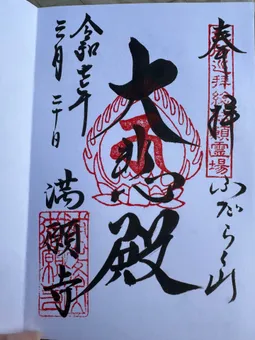 奉拝
ふだらく山
大悲殿
満願寺
令和七年
三月二十日